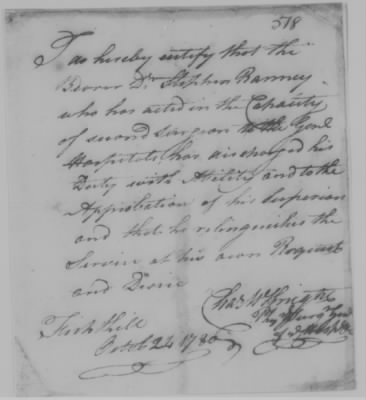 518
I do hereby certify that the
Bearer Dr Stephen Ranney
who has acted in the Capacity
of second surgeon to the Genl
Hospitals has discharged his
Duty with Ability and to the
Approbation of his Superiors
and that he relinquishes the
Service at his own Request
and Desire
Chas McKnight
Phy Surg Genl
Fish Kill
Octobr 24 1780